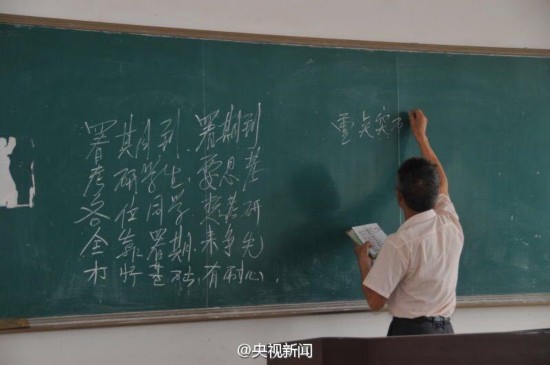 署期到.署期到
考研学生.要思量
各位同学.想考研
全靠署期.来争先
打好基础.有利心.
重点突
@央视新闻